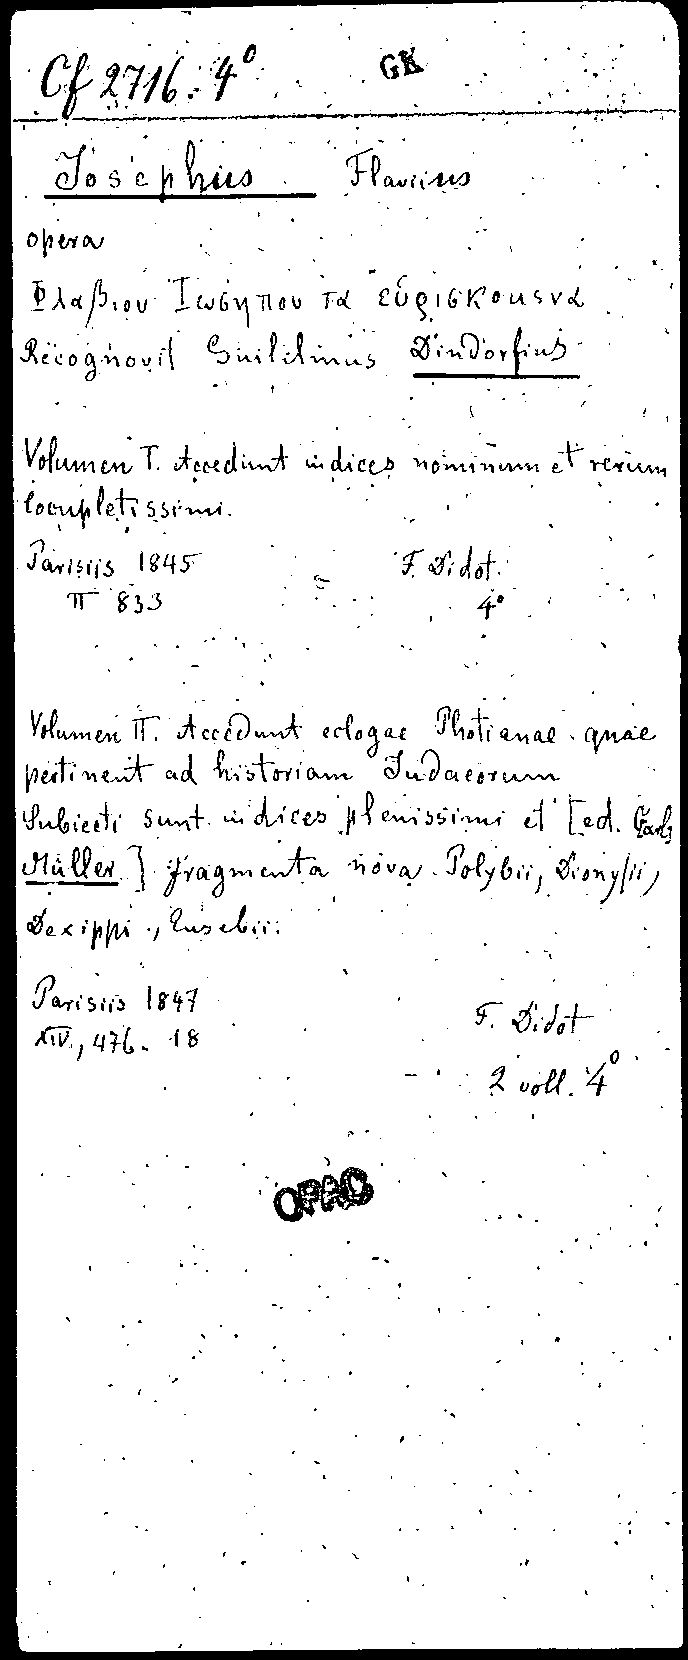 Cf 2716. 4°
GK
Josephus Flavius
opera
Φλαβιου Ἰωσηπου τα εὑρισκομενα
Recognovit Guilelmus Dindorfius
Volumen I. Accedunt indices nominum et rerum
locupletissimi.
Parisiis 1845 F. Didot.
II 833 4°
Volumen II. Accedunt eclogae Photianae quae
pertinent ad historiam Judaeorum
Subiecti sunt indices plenissimi et [ed. Carl
Müller] fragmenta nova Polybii, Dionysii,
Dexippi, Eusebii.
Parisiis 1847 F. Didot
XIV, 476. 18
2 voll. 4°
OPAC